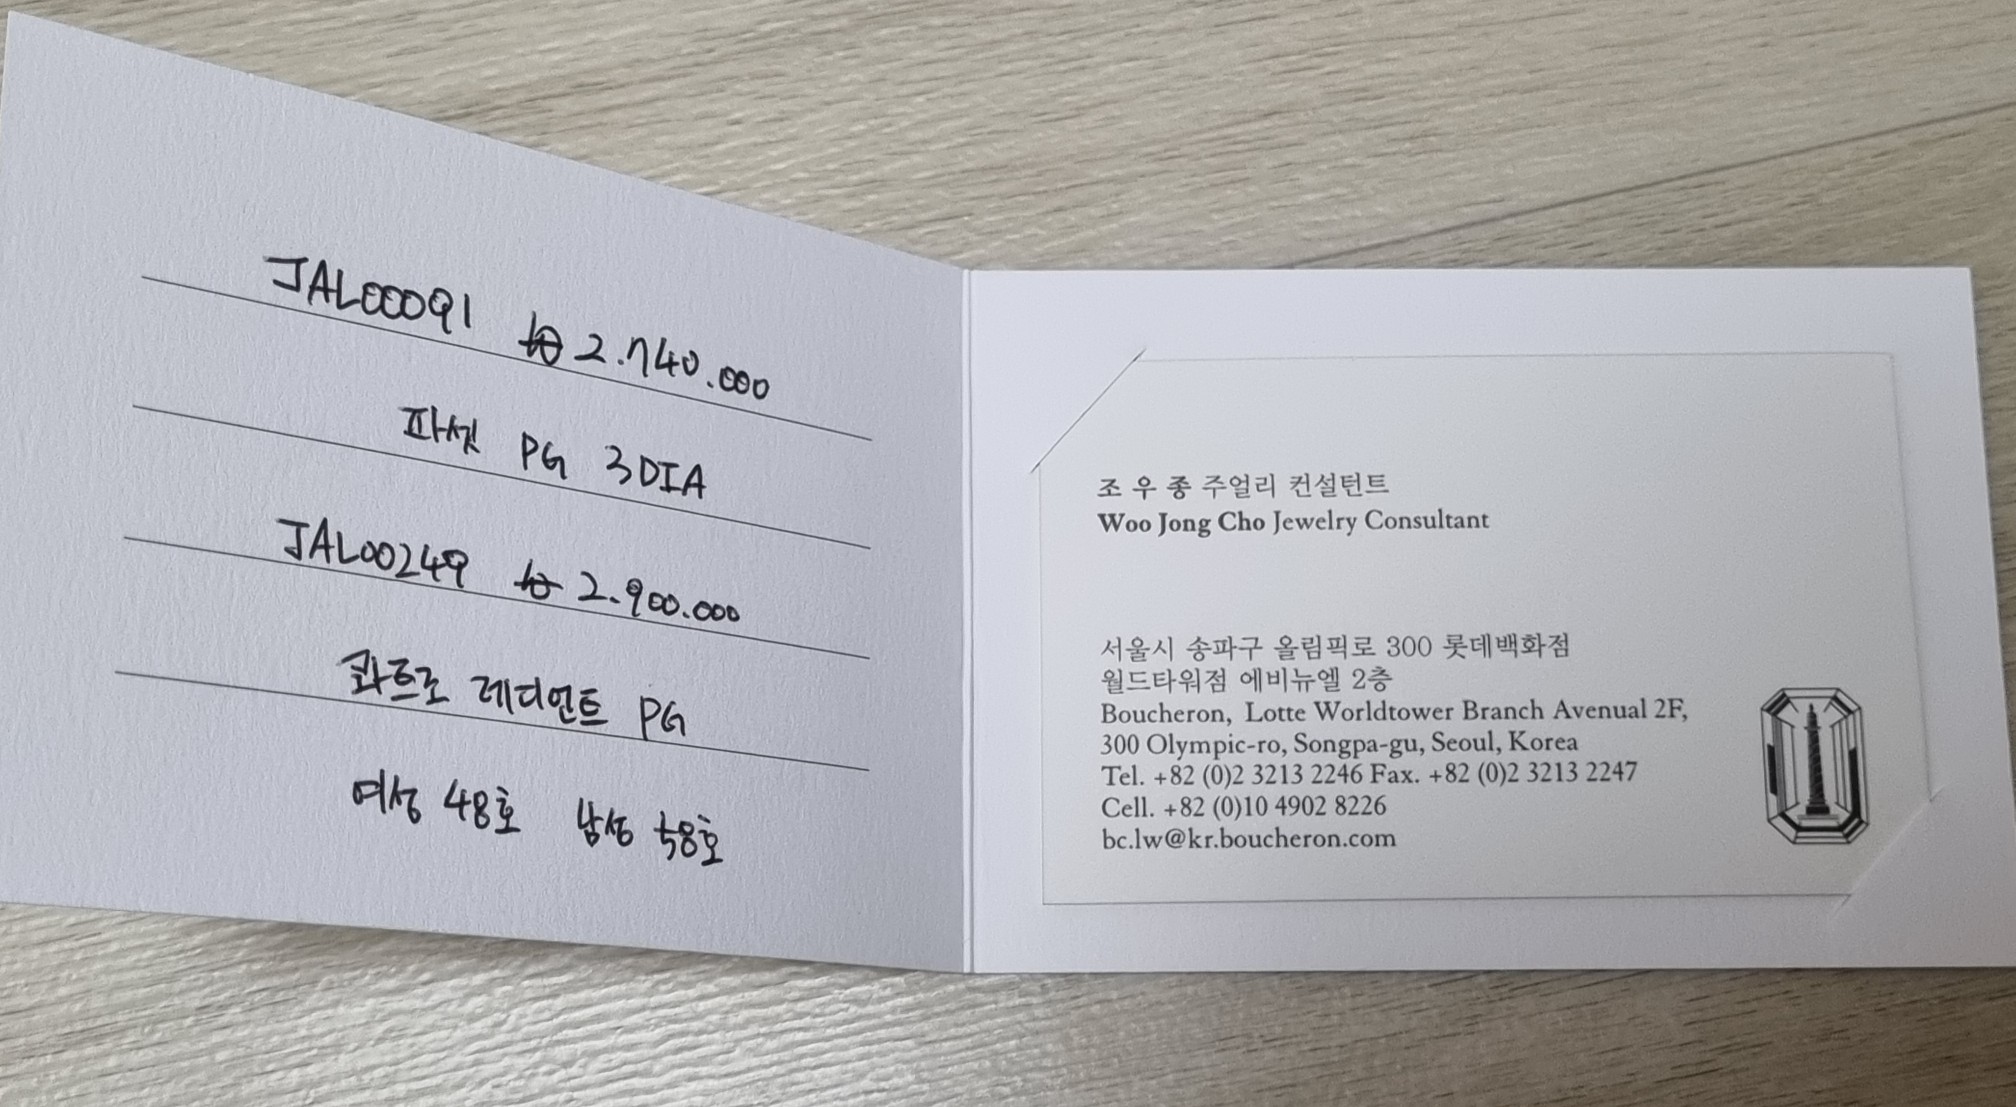 JAL00091 ₩2.740.000
파셋 PG 3DIA
JAL00249 ₩2.900.000
콰트로 레디언트 PG
여성 48호 남성 58호
조 우 종 주얼리 컨설턴트
Woo Jong Cho Jewelry Consultant
서울시 송파구 올림픽로 300 롯데백화점
월드타워점 에비뉴엘 2층
Boucheron, Lotte Worldtower Branch Avenual 2F,
300 Olympic-ro, Songpa-gu, Seoul, Korea
Tel. +82 (0)2 3213 2246 Fax. +82 (0)2 3213 2247
Cell. +82 (0)10 4902 8226
bc.lw@kr.boucheron.com